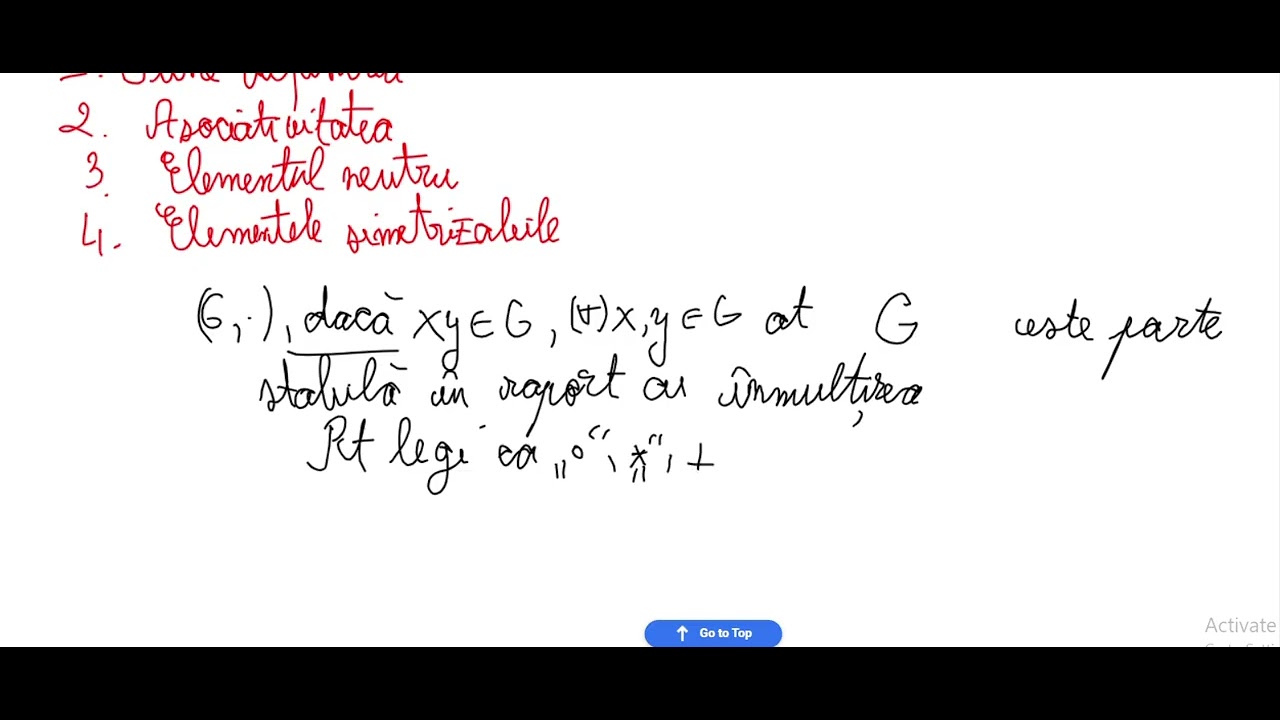 2. Asociativitatea
3. Elementul neutru
4. Elementele simetrizabile
(G, ·), dacă xy ∈ G, (∀) x, y ∈ G at G este parte
stabilă în raport cu înmulțirea
Pt legi ca „∘“, „*“, ⊥
Go to Top
Activate